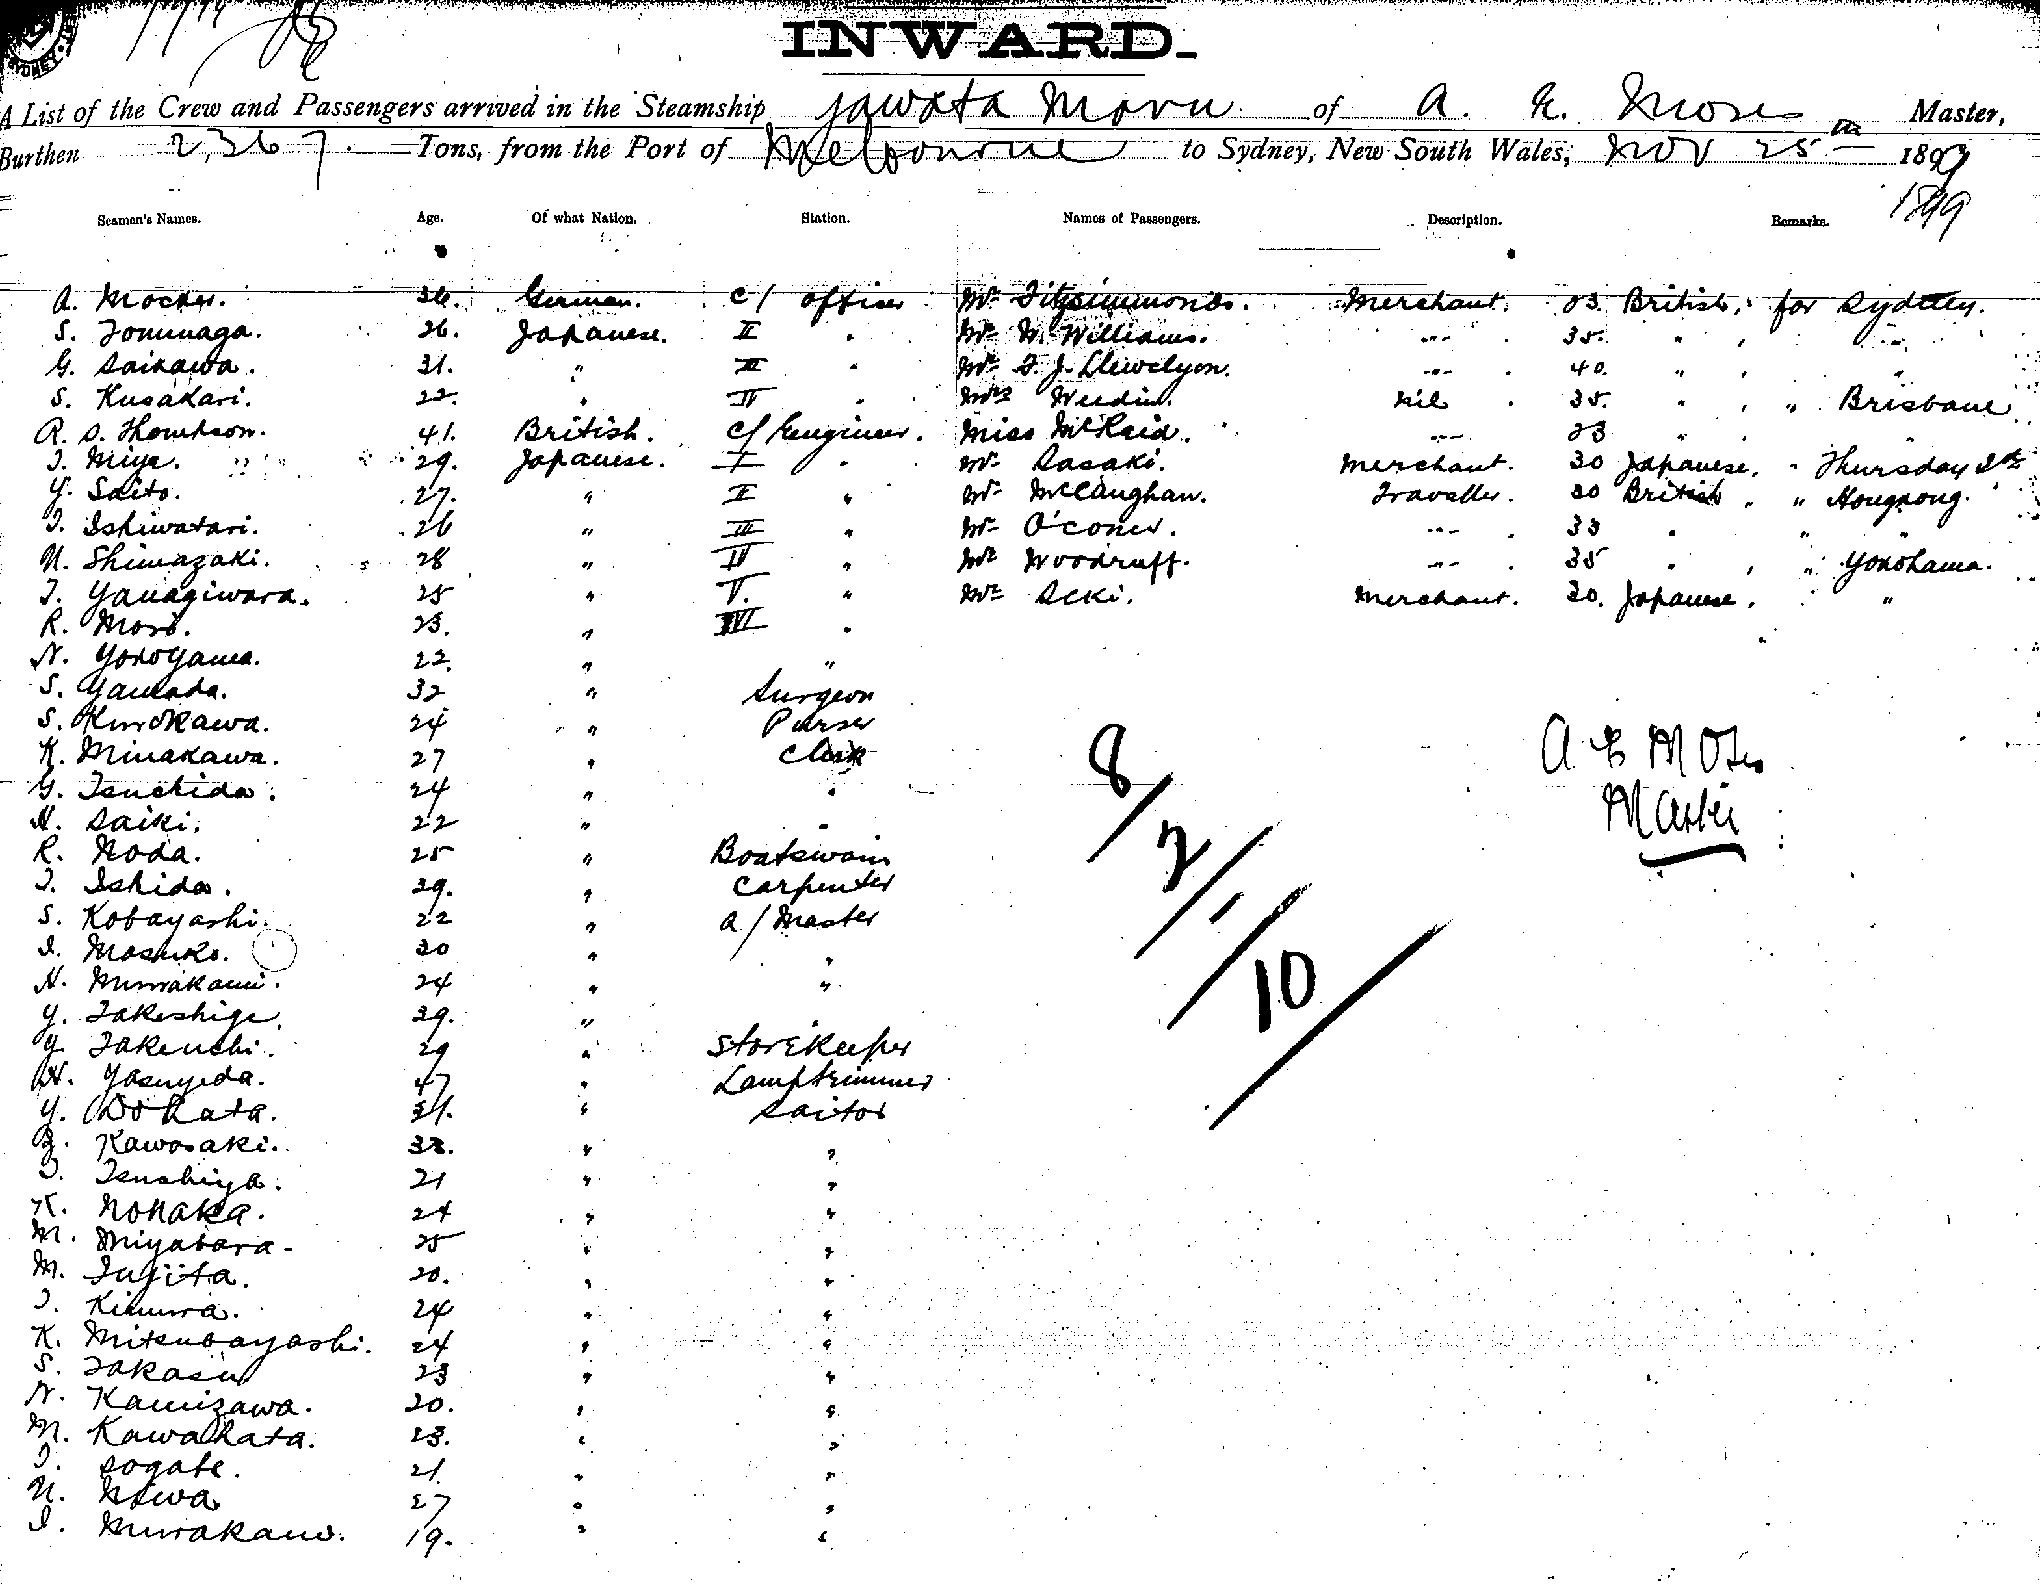 INWARD.
A List of the Crew and Passengers arrived in the Steamship Yawata Maru of A. E. Moses Master,
Burthen 2,367. Tons, from the Port of Melbourne to Sydney, New South Wales, Nov 25th 1899
1899
Seamen's Names. Age. Of what Nation. Station. Names of Passengers. Description. Remarks.
A. Mocker. 36. German. C/ officer Mr Fitzsimmonds. Merchant. 03. British, for Sydney.
S. Tominaga. 26. Japanese. II " Mr W. Williams. --- 35. " , "
G. Saikawa. 31. " III " Mr F. J. Llewelyon. --- 40. " , "
S. Kusakari. 22. " IV " Mrs Weedin. Nil 35. " , " Brisbane
R. S. Thompson. 41. British. C/ Engineer. Miss McKaid. --- 23 " "
T. Miya. 29. Japanese. I " Mr Sasaki. Merchant. 30 Japanese. " Thursday Isd
Y. Saito. 27. " II " Mr McCaughan. Traveller. 30 British, " Hongkong.
T. Ishiwatari. 26 " III " Mr O'coner. --- 33 " " "
U. Shimazaki. 28 " IV " Mr Woodruff. --- 35 " , " Yokohama.
T. Yanagiwara. 25 " V. " Mr Seki. Merchant. 30. Japanese, "
R. Mori. 23. " VI "
N. Yokoyama. 22. " "
S. Yamada. 32 " Surgeon
S. Kurokawa. 24 " Purser
K. Minakawa. 27 " Clerk
G. Tsuchida. 24 " "
N. Saiki. 22 " "
R. Noda. 25 " Boatswain
T. Ishida. 29. " Carpenter
S. Kobayashi. 22 " Q/Master
I. Mashiko. 30 " "
N. Murakami. 24 " "
Y. Takeshige. 39. " "
Y. Takeuchi. 29 " Storekeeper
N. Yasuyeda. 47 " Lamptrimmer
Y. Dohata. 31. " Sailor
Z. Kawasaki. 33. " "
T. Tsuchiya. 21 " "
K. Nonaka. 24 " "
M. Miyabara. 25 " "
M. Fujita. 20. " "
T. Kimura. 24 " "
K. Mitsubayashi. 24 " "
S. Takasu 23 " "
N. Kamizawa. 20. " "
M. Kawabata. 23. " "
T. Sogabe. 21 " "
U. Niwa 27 " "
I. Murakami. 19. " "
8/2/1/10
A E Moses
Master